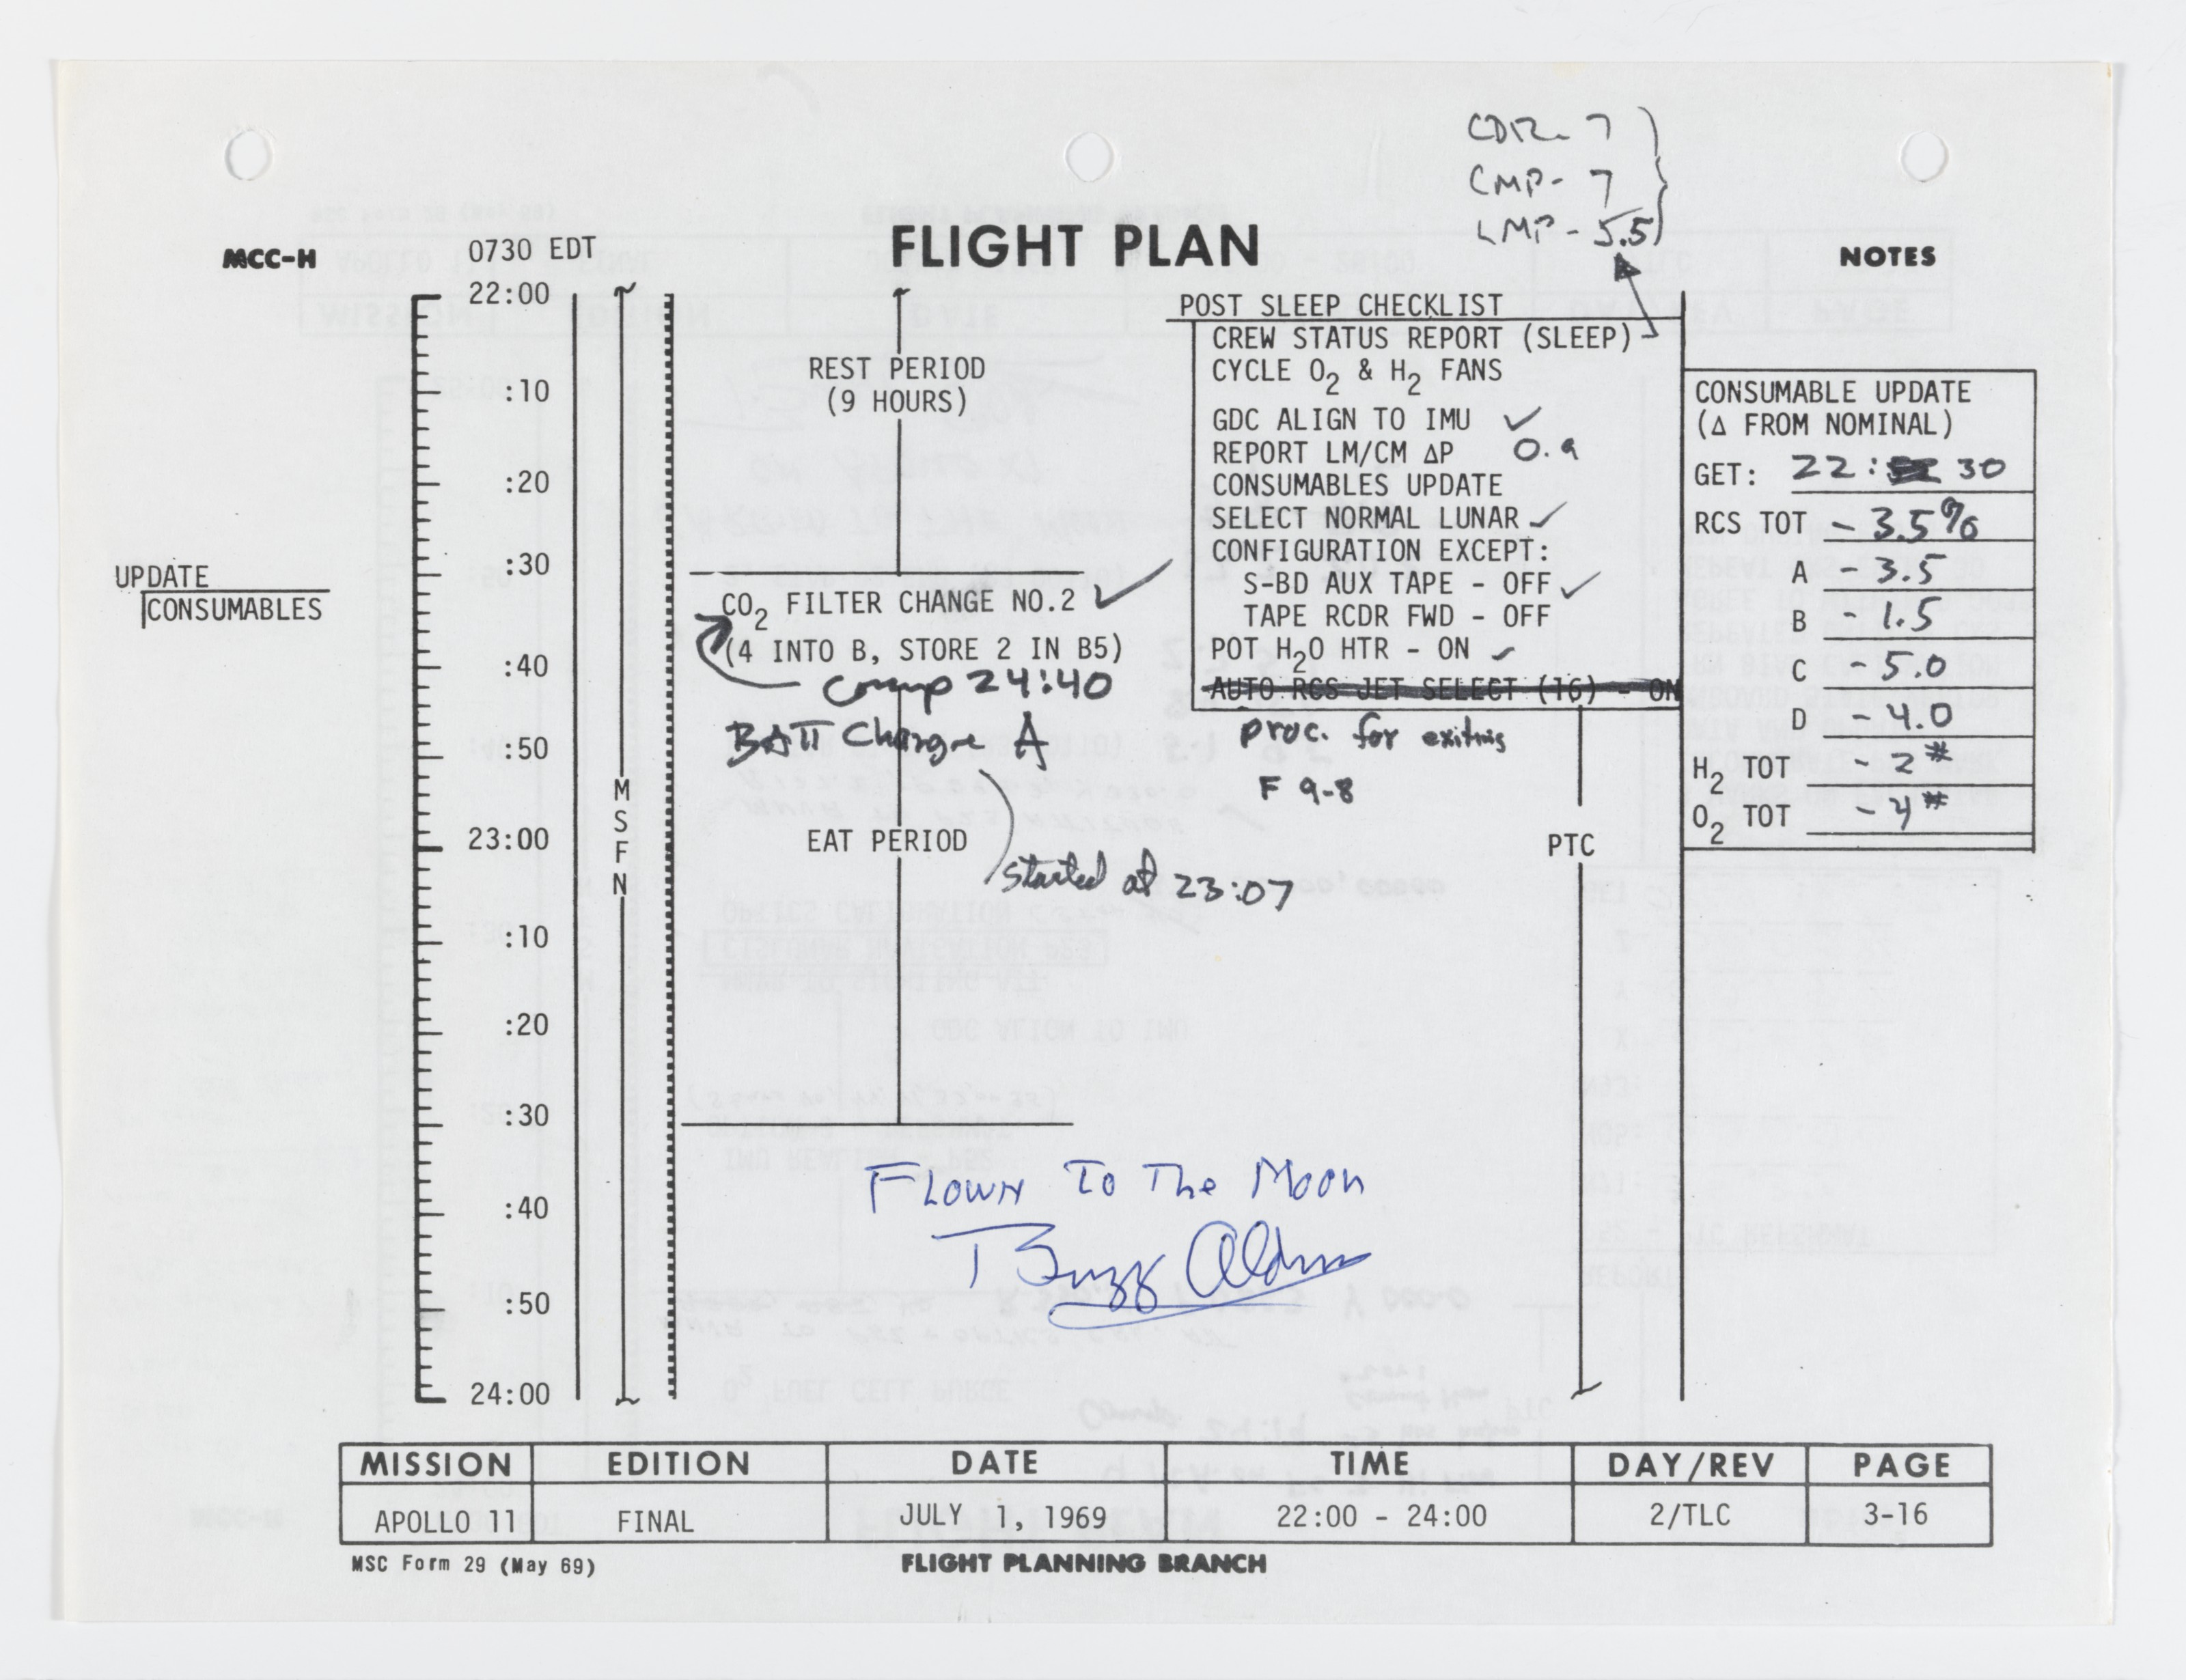 CDR - 7
CMP - 7
LMP - 5.5
MCC-H
0730 EDT
FLIGHT PLAN
NOTES
22:00
:10
:20
:30
:40
:50
23:00
:10
:20
:30
:40
:50
24:00
UPDATE
CONSUMABLES
M
S
F
N
REST PERIOD
(9 HOURS)
CO2 FILTER CHANGE NO.2 ✓
(4 INTO B, STORE 2 IN B5)
Comp 24:40
BATT Charge A
EAT PERIOD
started at 23:07
POST SLEEP CHECKLIST
CREW STATUS REPORT (SLEEP)
CYCLE O2 & H2 FANS
GDC ALIGN TO IMU ✓
REPORT LM/CM ΔP 0.9
CONSUMABLES UPDATE
SELECT NORMAL LUNAR ✓
CONFIGURATION EXCEPT:
S-BD AUX TAPE - OFF ✓
TAPE RCDR FWD - OFF
POT H2O HTR - ON ✓
AUTO RCS JET SELECT (16) - ON
proc. for exiting
F 9-8
PTC
CONSUMABLE UPDATE
(Δ FROM NOMINAL)
GET: 22: 30
RCS TOT - 3.5%
A - 3.5
B - 1.5
C - 5.0
D - 4.0
H2 TOT - 2#
O2 TOT - 4#
Flown To The Moon
Buzz Aldrin
MISSION EDITION DATE TIME DAY/REV PAGE
APOLLO 11 FINAL JULY 1, 1969 22:00 - 24:00 2/TLC 3-16
MSC Form 29 (May 69)
FLIGHT PLANNING BRANCH